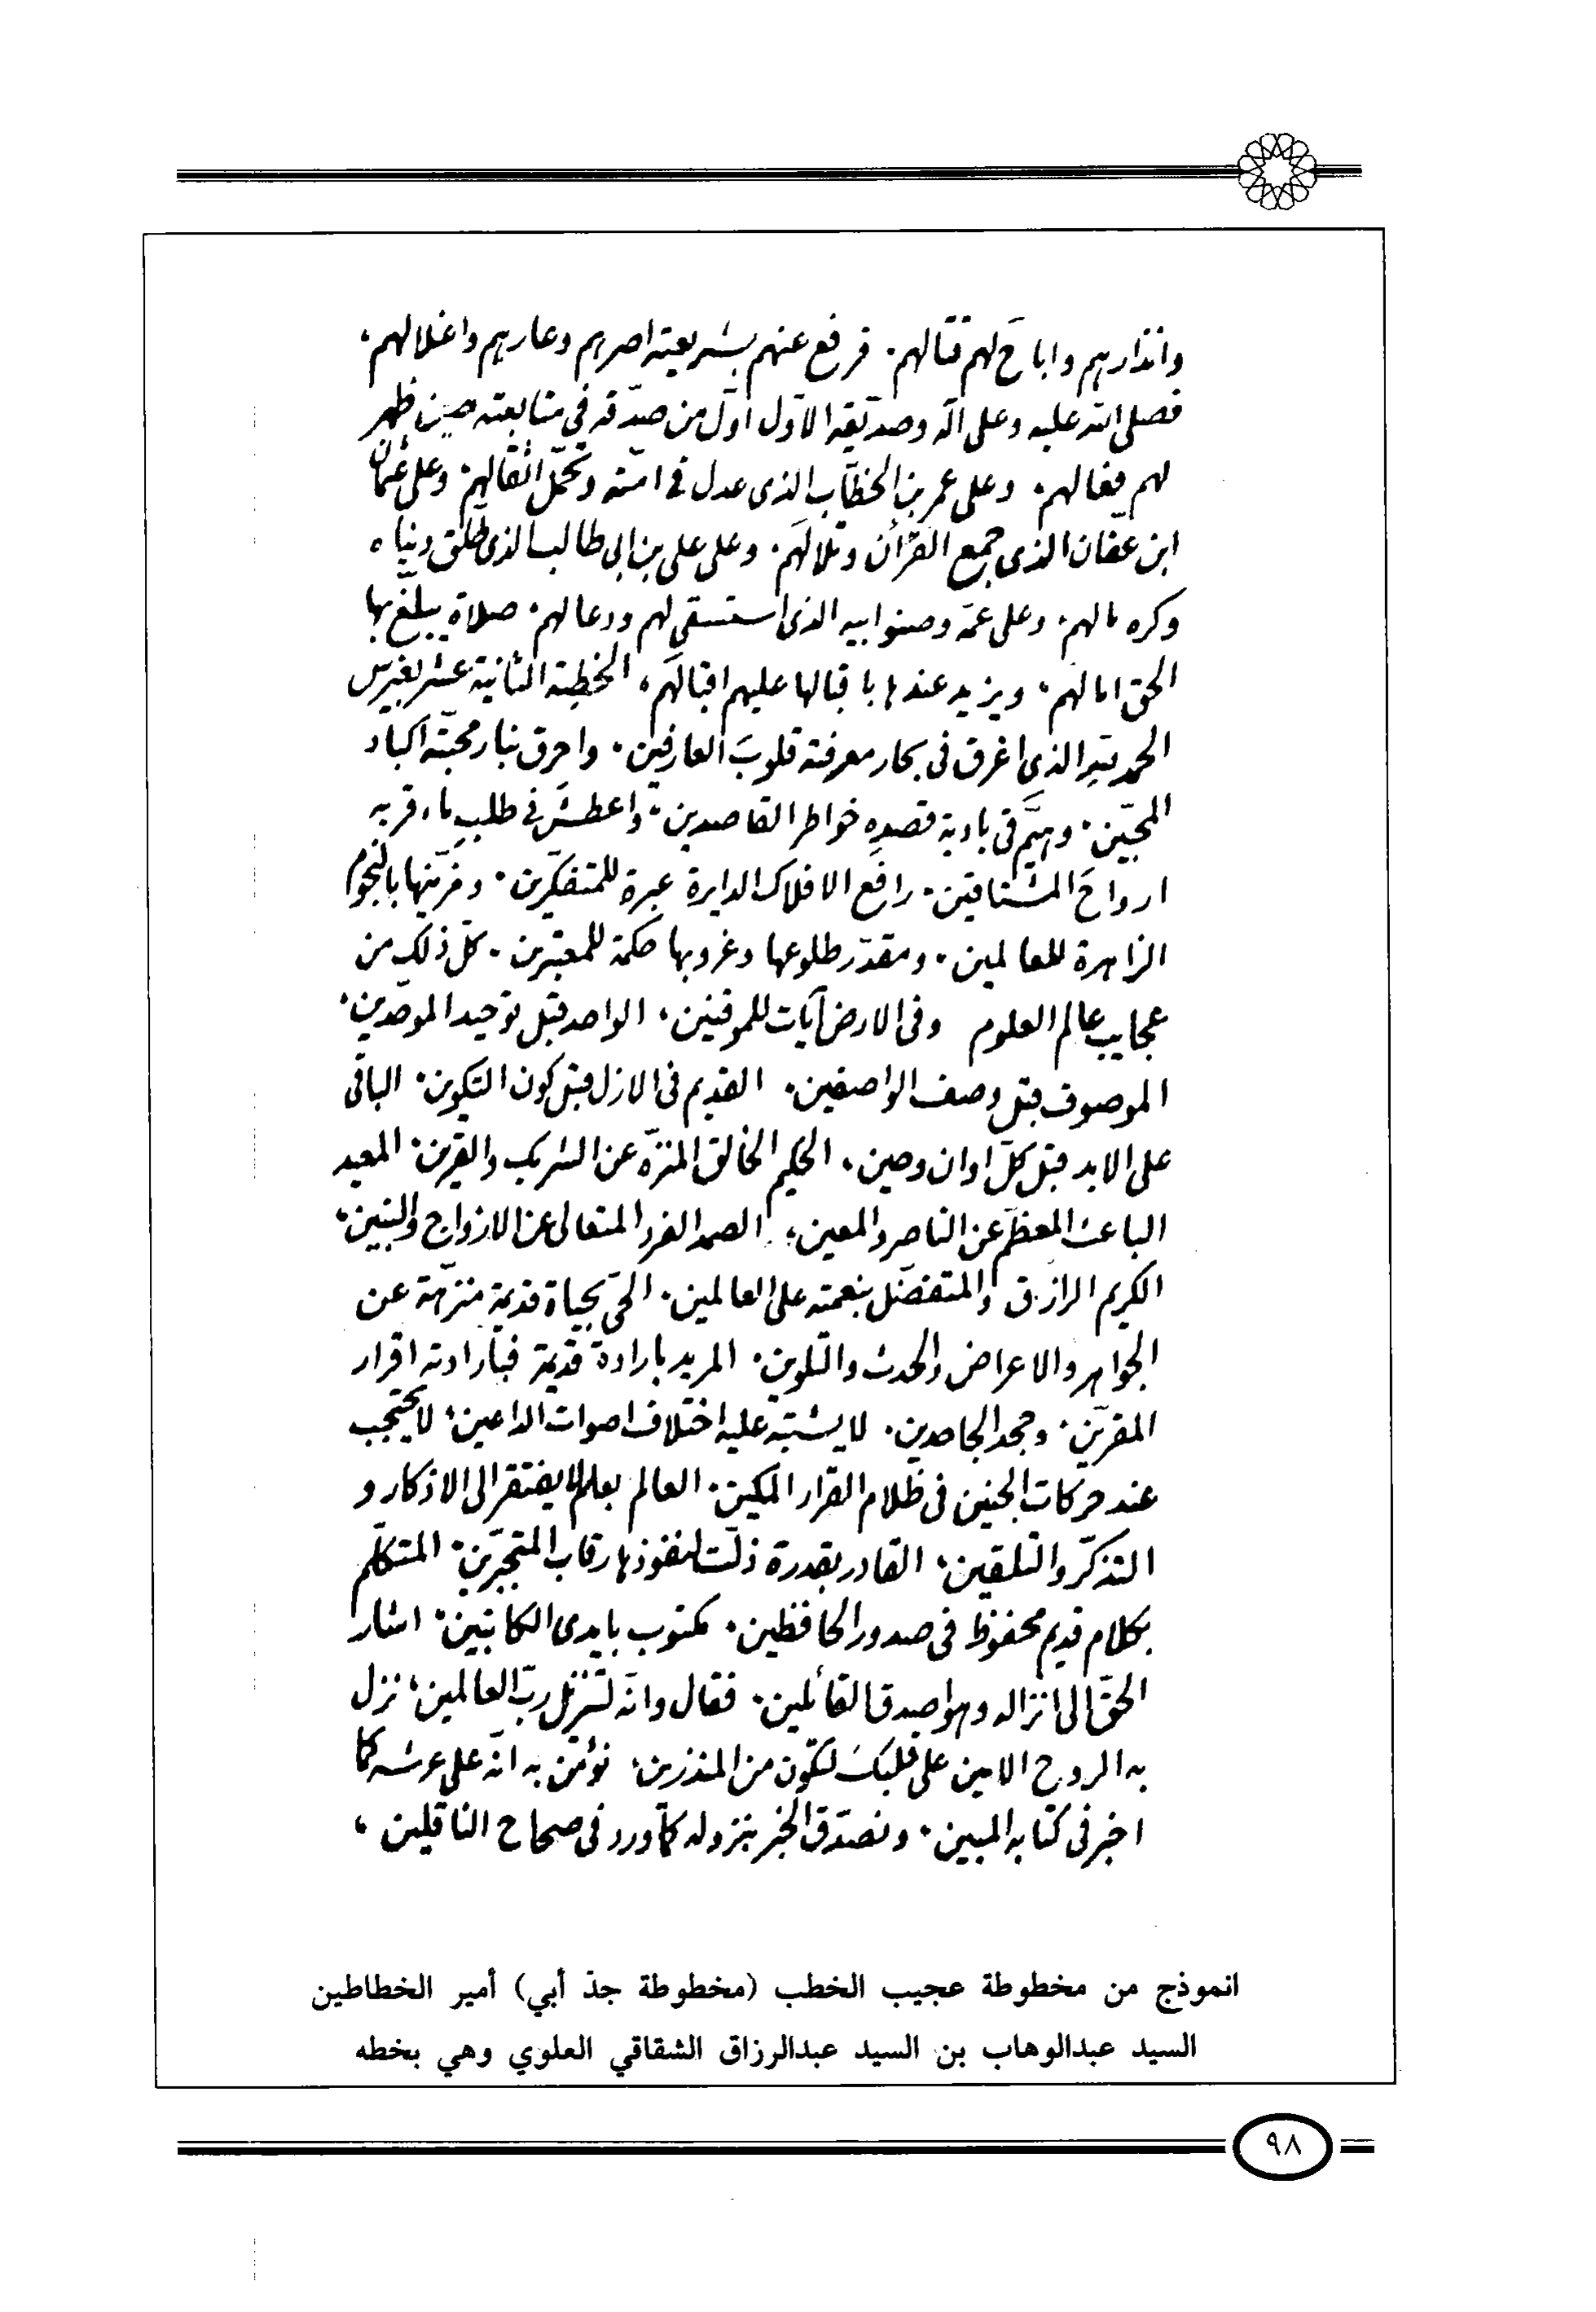 وانذارهم واباحَ لهم قتالهم. فرفع عنهم بشريعته اصرهم وعارهم واغلالهم،
فصلى الله عليه وعلى آله وصدّيقه الاوّل اوّل من صدّقه فى متابعته حين ظهر
لهم فعالهم. وعلى عمر بن الخطّاب الذى عدل فى امّته وتحمّل اثقالهم. وعلى عثمان
ابن عفان الذى جمع القرأن وتلالهم. وعلى على بن ابى طالب الذى طلّق دنياه
وكره مالهم. وعلى عمّه وصنو ابيه الذى استسقى لهم ودعا لهم. صلاة يبلغ بها
الحق امالهم. ويزيد عندها باقبالها عليهم اقبالهم، الخطبة الثانية عشر لغيرس
الحمد لله الذى اغرق فى بحار معرفته قلوبَ العارفين. واحرق بنار محبّته اكباد
المحبّين. وهيّم فى بادية قصدهِ خواطر القاصدين. واعطشَ فى طلب ماء قربه
ارواحَ المشتاقين. رافع الافلاك الدايرة عبرة للمتفكرين. ومزيّنها بالنجوم
الزاهرة للعالمين. ومقدّر طلوعها وغروبها حكمة للمعتبرين. كلّ ذلك من
عجايب عالم العلوم وفى الارض آيات للموقنين، الواحد قبل توحيد الموحّدين.
الموصوف قبل وصف الواصفين. القديم فى الازل قبل كون التكوين. الباقى
على الابد قبل كلّ اوان وحين، الحكيم الخالق المنزّه عن الشريك والقرين. المعيد
الباعث المعظّم عن الناصر والمعين، الصمد الفرد المتعالى عن الازواج والبنين،
الكريم الرازق والمتفضّل بنعمته على العالمين. الحىّ بحياة قديمة منزّهة عن
الجواهر والاعراض والحدث والتلوين. المريد بارادة قديمة فبارادته اقرار
المقرّين. وجحد الجاحدين. لا يشتبه عليه اختلاف اصوات الداعين، لا يحتجب
عند حركات الجنين فى ظلام القرار المكين. العالم بعلم لا يفتقر الى الاذكار و
التذكّر والتلقين، القادر بقدرة ذلّت لنفوذها رقاب المتجبّرين. المتكلّم
بكلام قديم محفوظ فى صدور الحافظين. مكتوب بايدى الكاتبين. اشار
الحقّ الى انزاله وهو اصدق القائلين. فقال وانّه لتنزيل ربّ العالمين، نزل
به الروح الامين على قلبكَ لتكون من المنذرين، نؤمن به انّه على عرشه كما
اخبر فى كتابه المبين. ونصدّق الخبر بنزوله كما ورد فى صحاح الناقلين،
انموذج من مخطوطة عجيب الخطب (مخطوطة جدّ أبي) أمير الخطاطين
السيد عبدالوهاب بن السيد عبدالرزاق الشقاقي العلوي وهي بخطه
٩٨